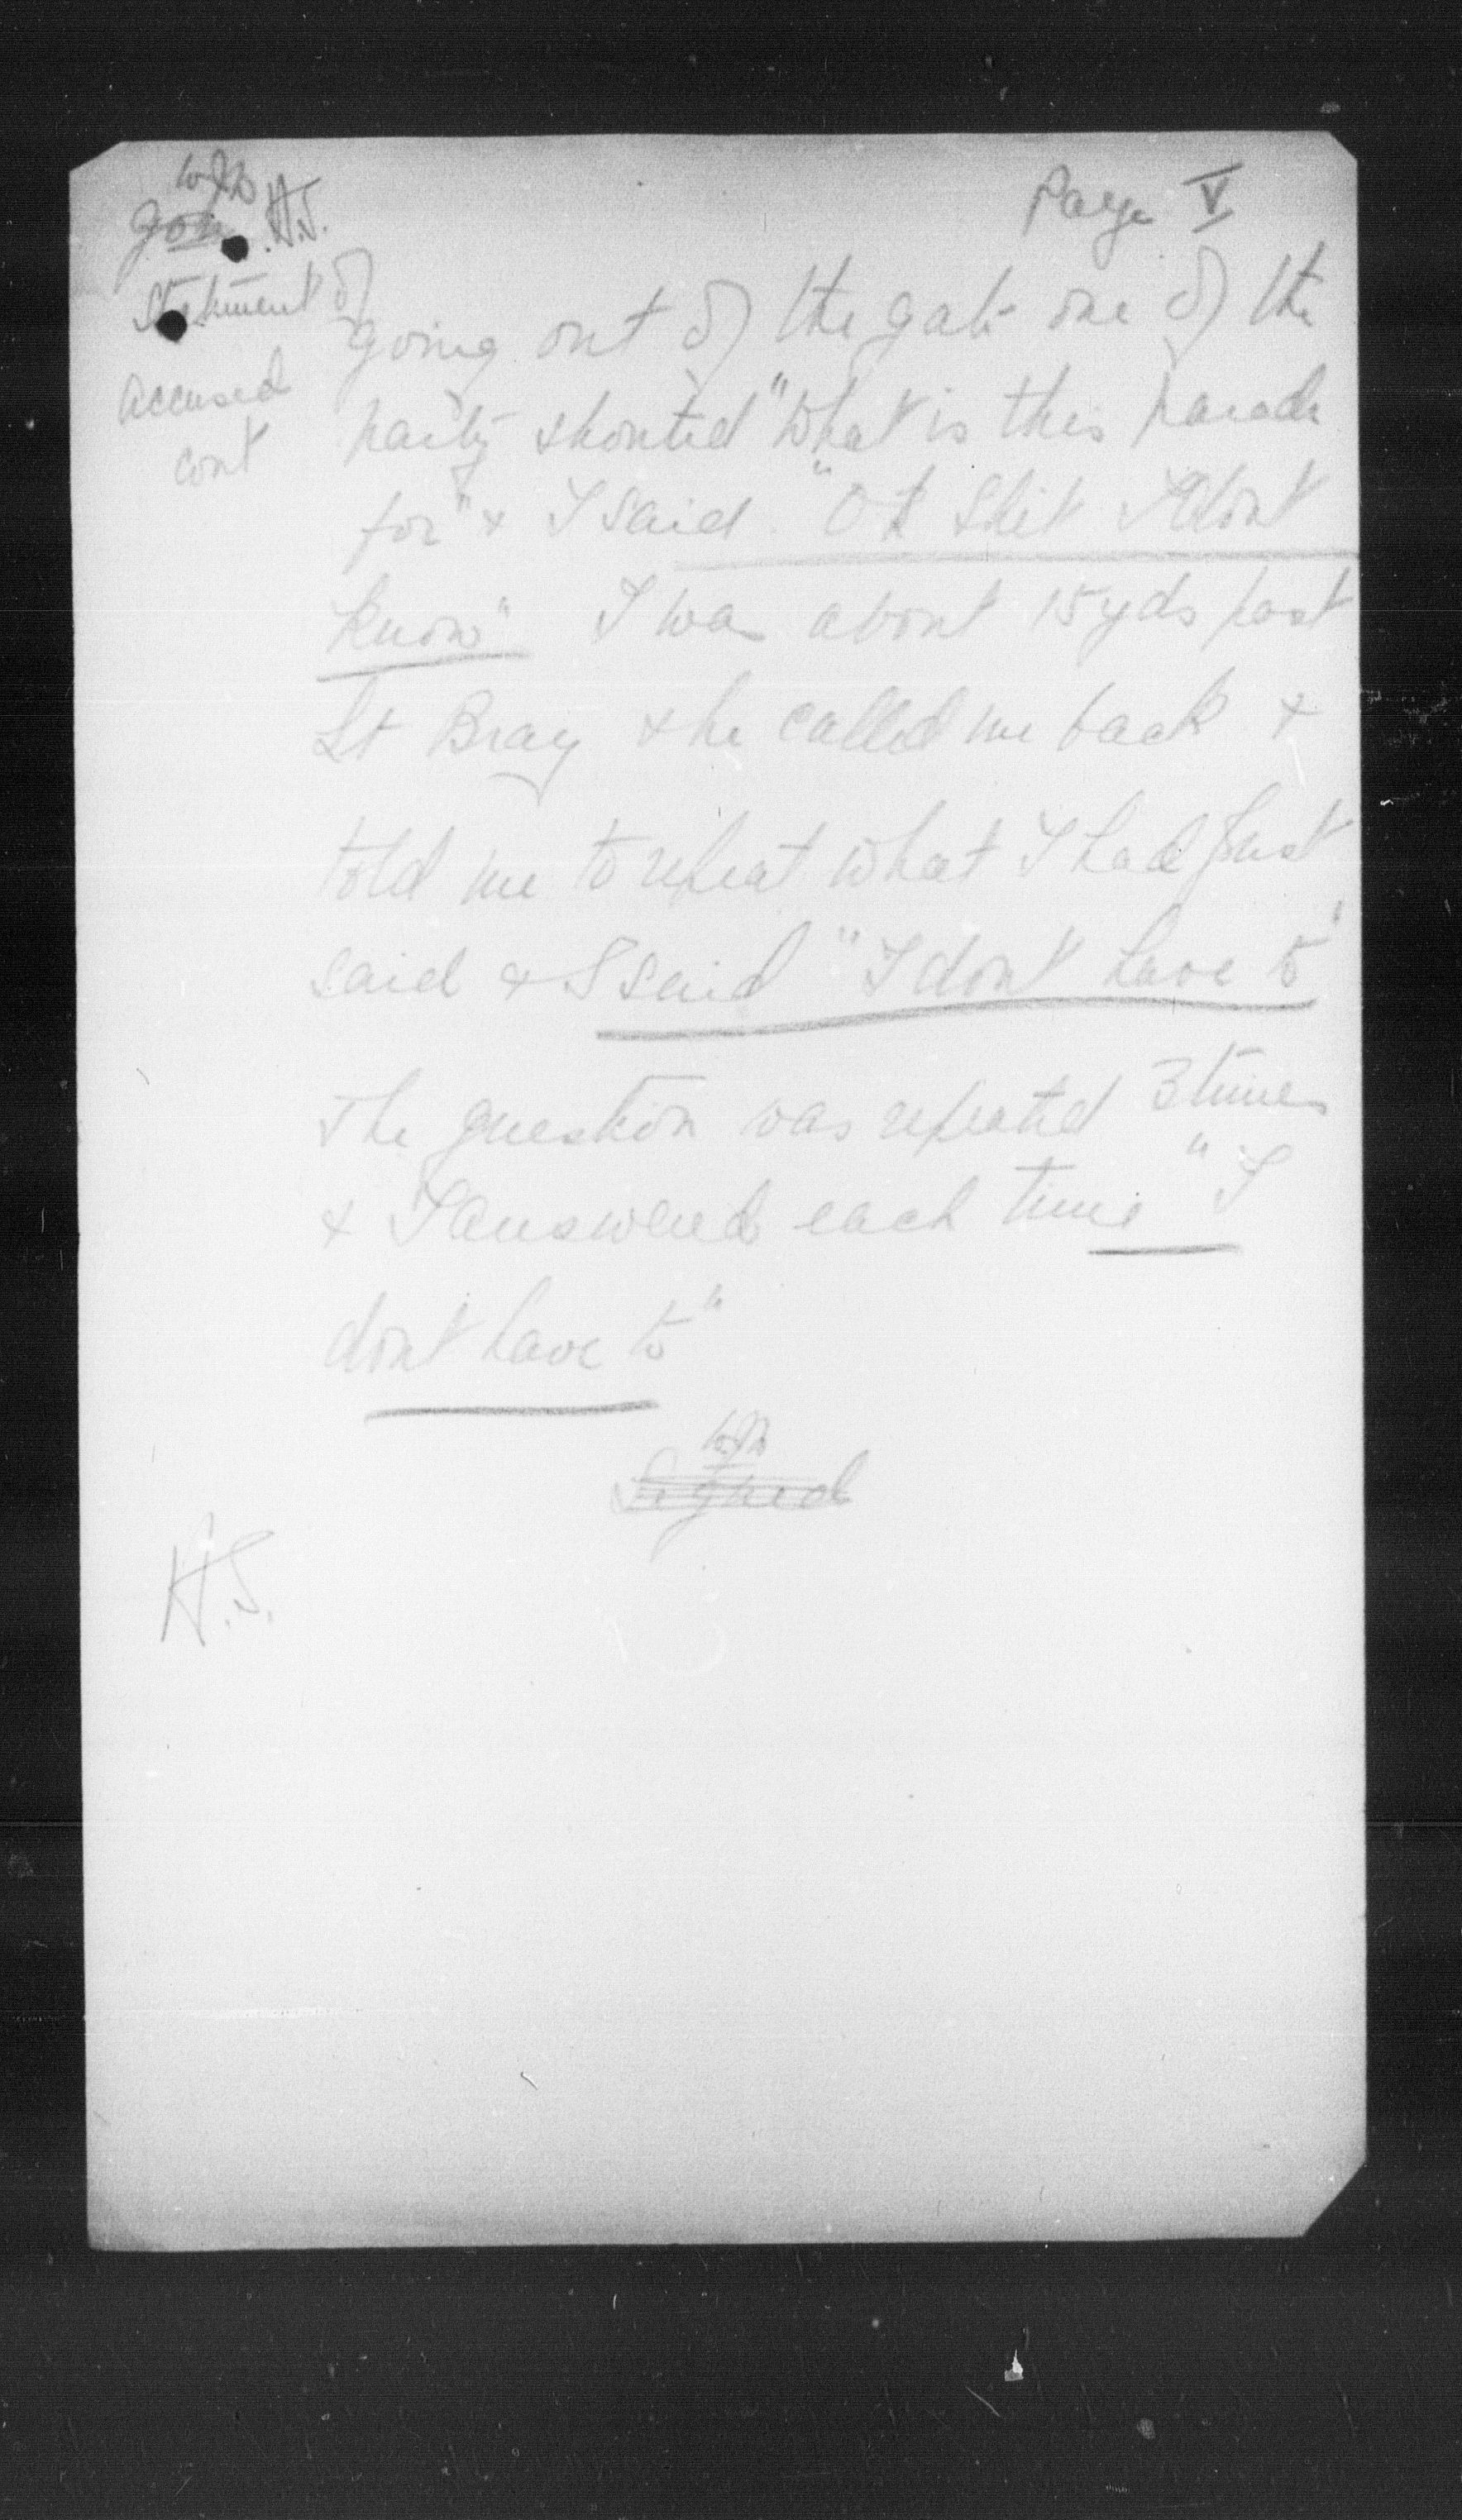 Page V
H.S.
Statement of
accused
cont
going out of the gate one of the
party shouted "What is this parade
for" & I said "Oh Shit I dont
know" I was about 15 yds past
Lt Bray & he called me back &
told me to repeat what I had just
said & I said "I dont have to"
The question was repeated 3 times
& I answered each time "I
dont have to"
Signed
H.S.